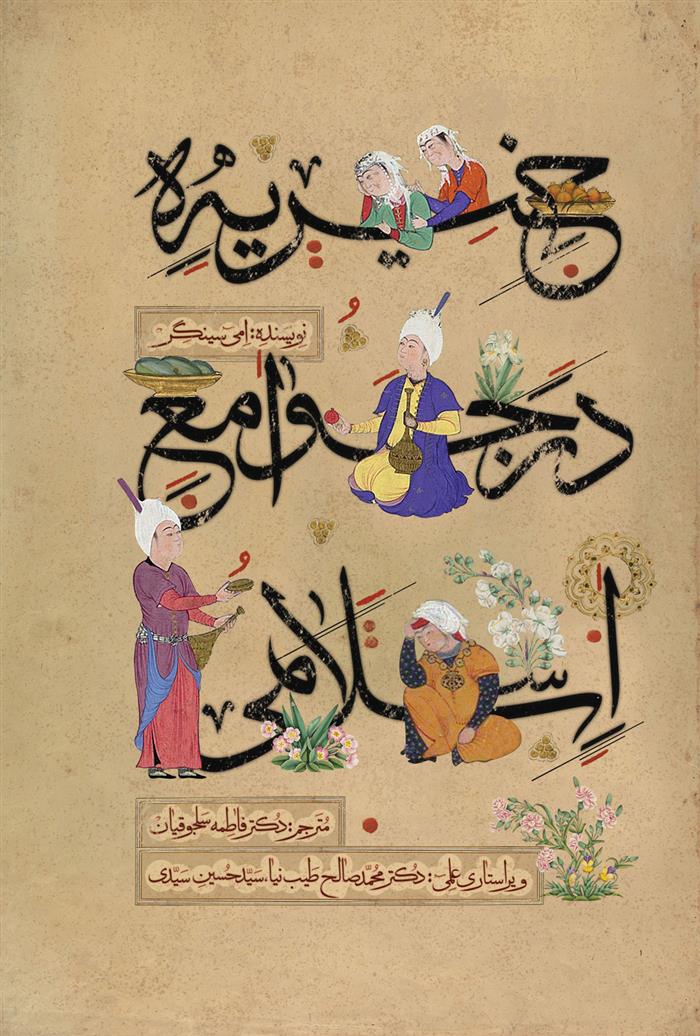 خیریه
نویسنده: امی سینگر
در جوامع
اسلامی
مترجم: دکتر فاطمه سلجوقیان
ویراستاری علمی: دکتر محمد صالح طیب نیا، سید حسین سیدی